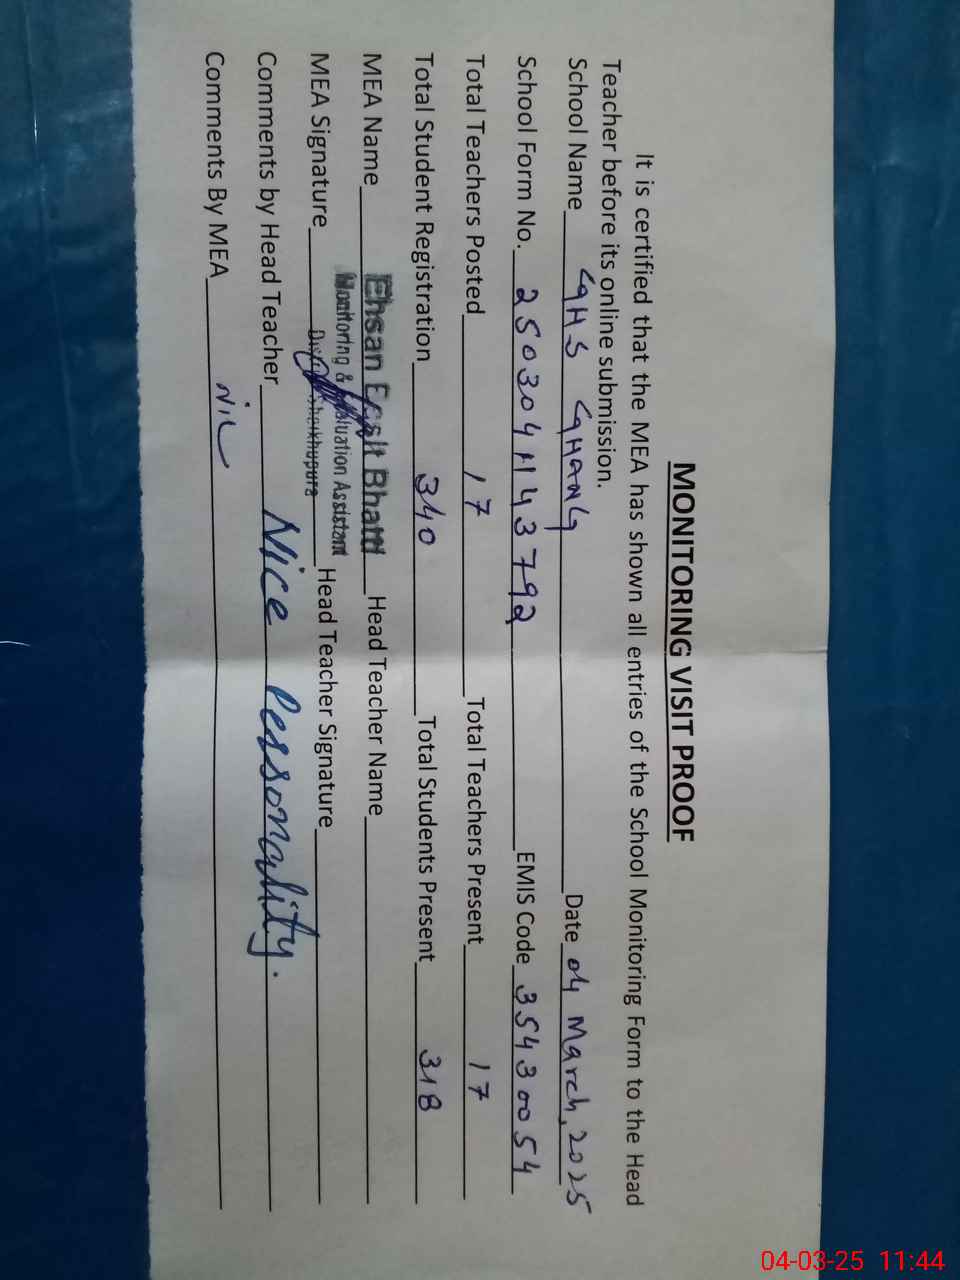 MONITORING VISIT PROOF
It is certified that the MEA has shown all entries of the School Monitoring Form to the Head
Teacher before its online submission.
School Name GHS GHANG Date 04 March, 2025
School Form No. 250304114 3792 EMIS Code 35430054
Total Teachers Posted 17 Total Teachers Present 17
Total Student Registration 340 Total Students Present 318
MEA Name Ehsan Bhatti Head Teacher Name
Monitoring & Evaluation Assistant
MEA Signature Sheikhupura Head Teacher Signature
Comments by Head Teacher Nice Personality.
Comments By MEA Nil
04-03-25 11:44